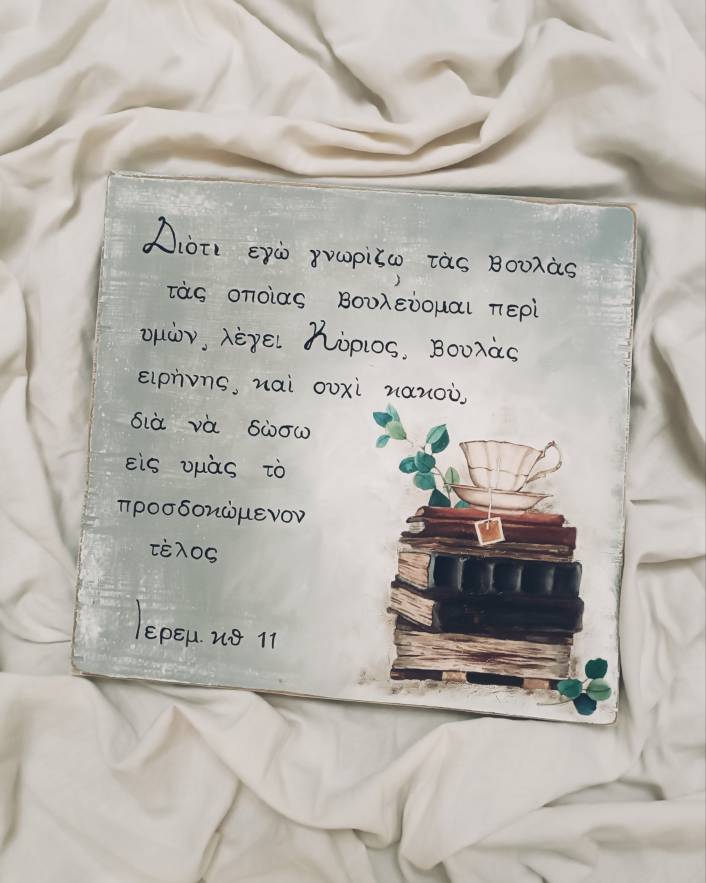 Διότι εγώ γνωρίζω τὰς βουλὰς
τὰς οποίας βουλεύομαι περὶ
υμών, λέγει Κύριος, βουλὰς
ειρήνης, καὶ ουχὶ κακού,
διὰ νὰ δώσω
εἰς υμὰς τὸ
προσδοκώμενον
τέλος
Ιερεμ. κθ 11